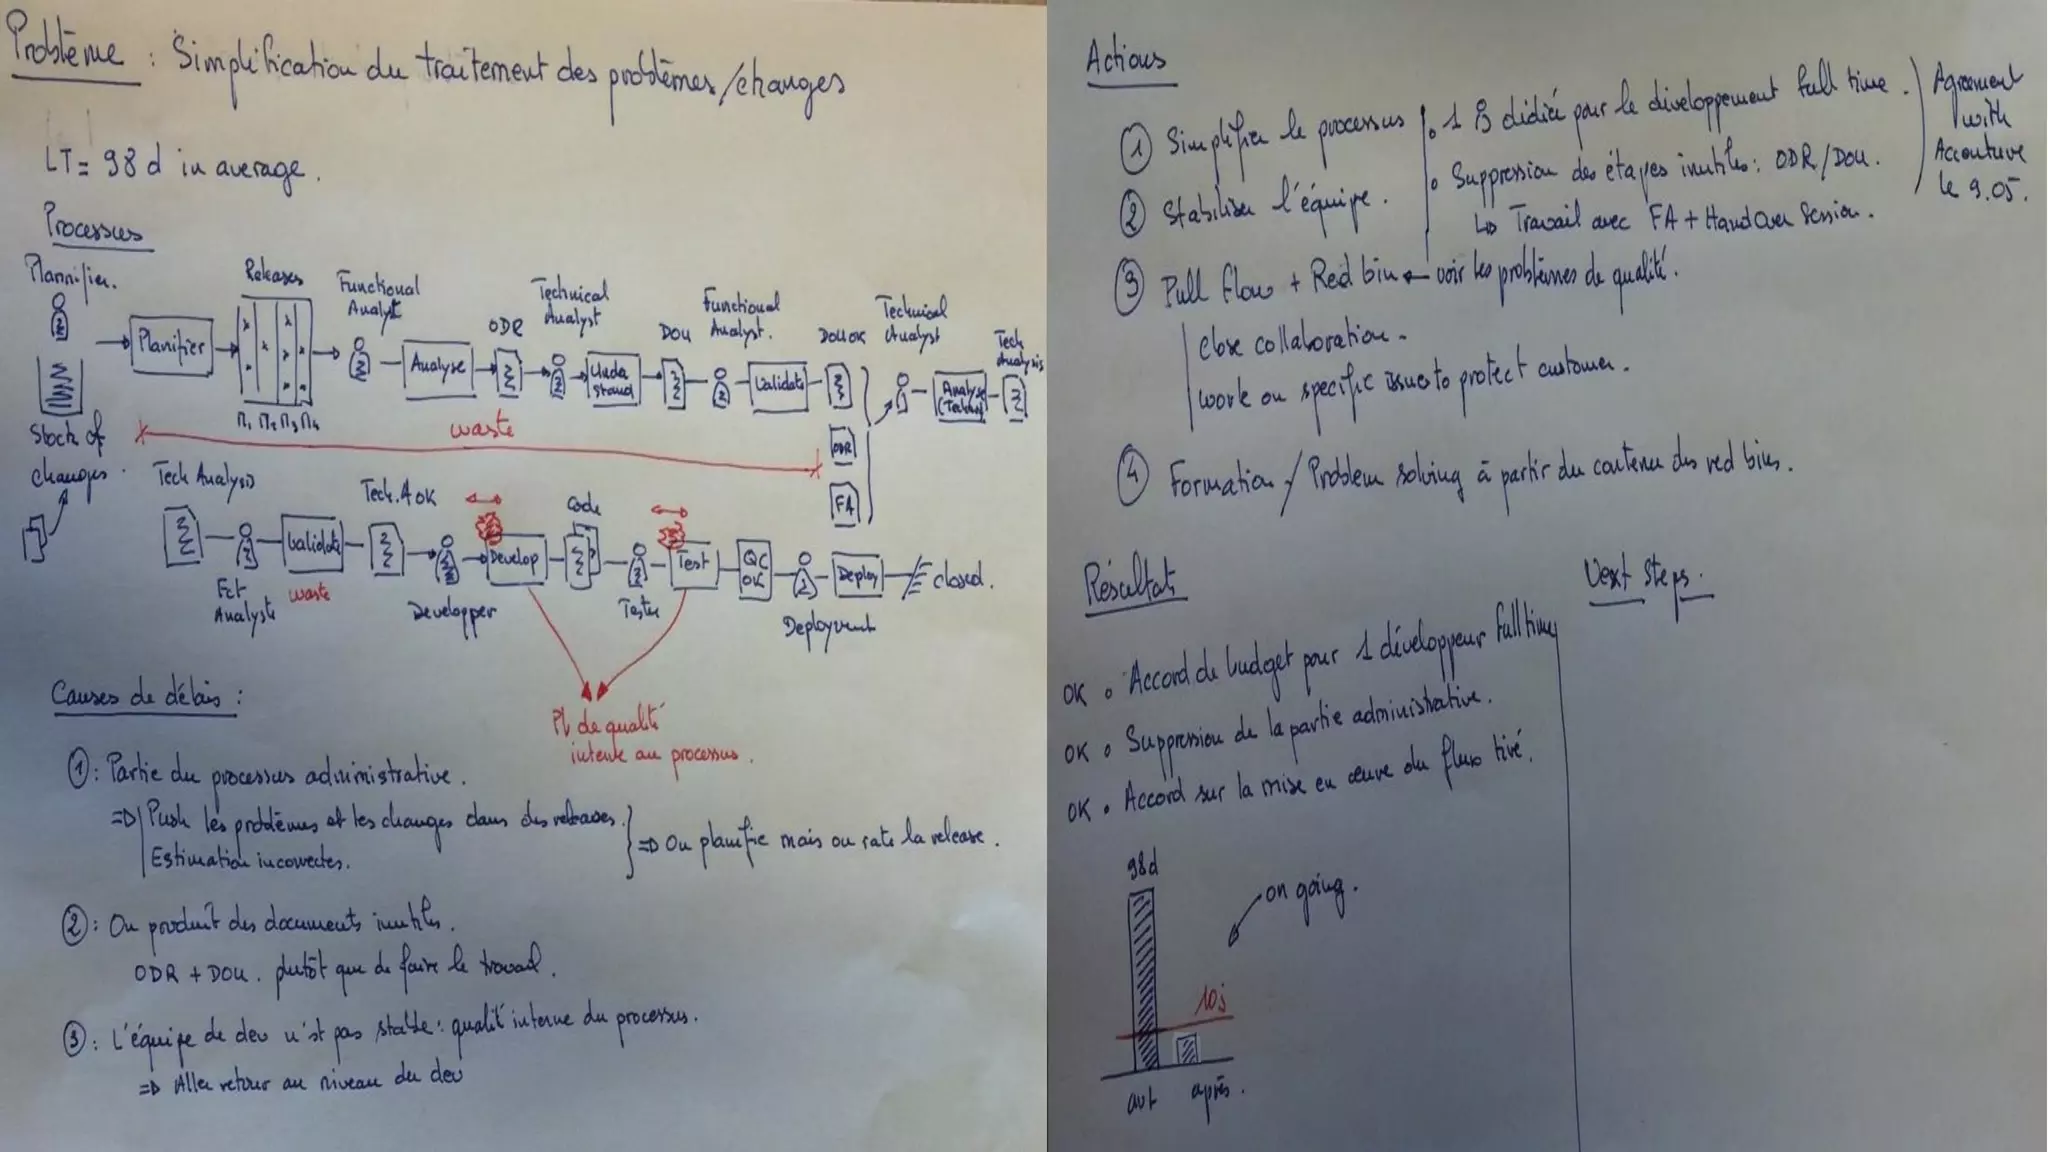 Problème : Simplification du traitement des problèmes/changes
LT = 98 d in average.
Processus
Plannifier.
Stock of
changes.
Planifier
Releases
R1 R2 R3 R4
Functional
Analyst
Analyse
ODR
Technical
Analyst
Unda
stand
DOU
Functional
Analyst.
Validate
DOU OK
ODR
FA
Technical
Analyst
Analyse
Tech
Analysis
waste
Tech Analysis
Fct
Analyste
Validate
waste
Tech. A OK
Developper
Develop
Code
Tester
Test
QC
OK
Deployment
Deploy
closed.
Pb de qualité
interne au processus.
Causes de délais :
① : Partie du processus administrative.
=> Push les problèmes et les changes dans des releases.
Estimation incorrectes.
=> On planifie mais on rate la release.
② : On produit des documents inutiles.
ODR + DOU. plutôt que de faire le travail.
③ : L'équipe de dev n'est pas stable : qualité interne du processus.
=> Aller retour au niveau du dev
Actions
① Simplifier le processus
② Stabiliser l'équipe.
1 dédiée pour le développement full time.
Suppression des étapes inutiles : ODR/DOU.
Travail avec FA + Hand Over Session.
Agreement
with
Accenture
le 9.05.
③ Pull flow + Red bin ← voir les problèmes de qualité.
close collaboration.
work on specific issues to protect customer.
④ Formation / Problem solving à partir du contenu des red bins.
Résultats
OK • Accord de budget pour 1 développeur full time
OK • Suppression de la partie administrative.
OK • Accord sur la mise en œuvre du flux tiré.
98d
on going.
10j
avt après.
Next Steps.